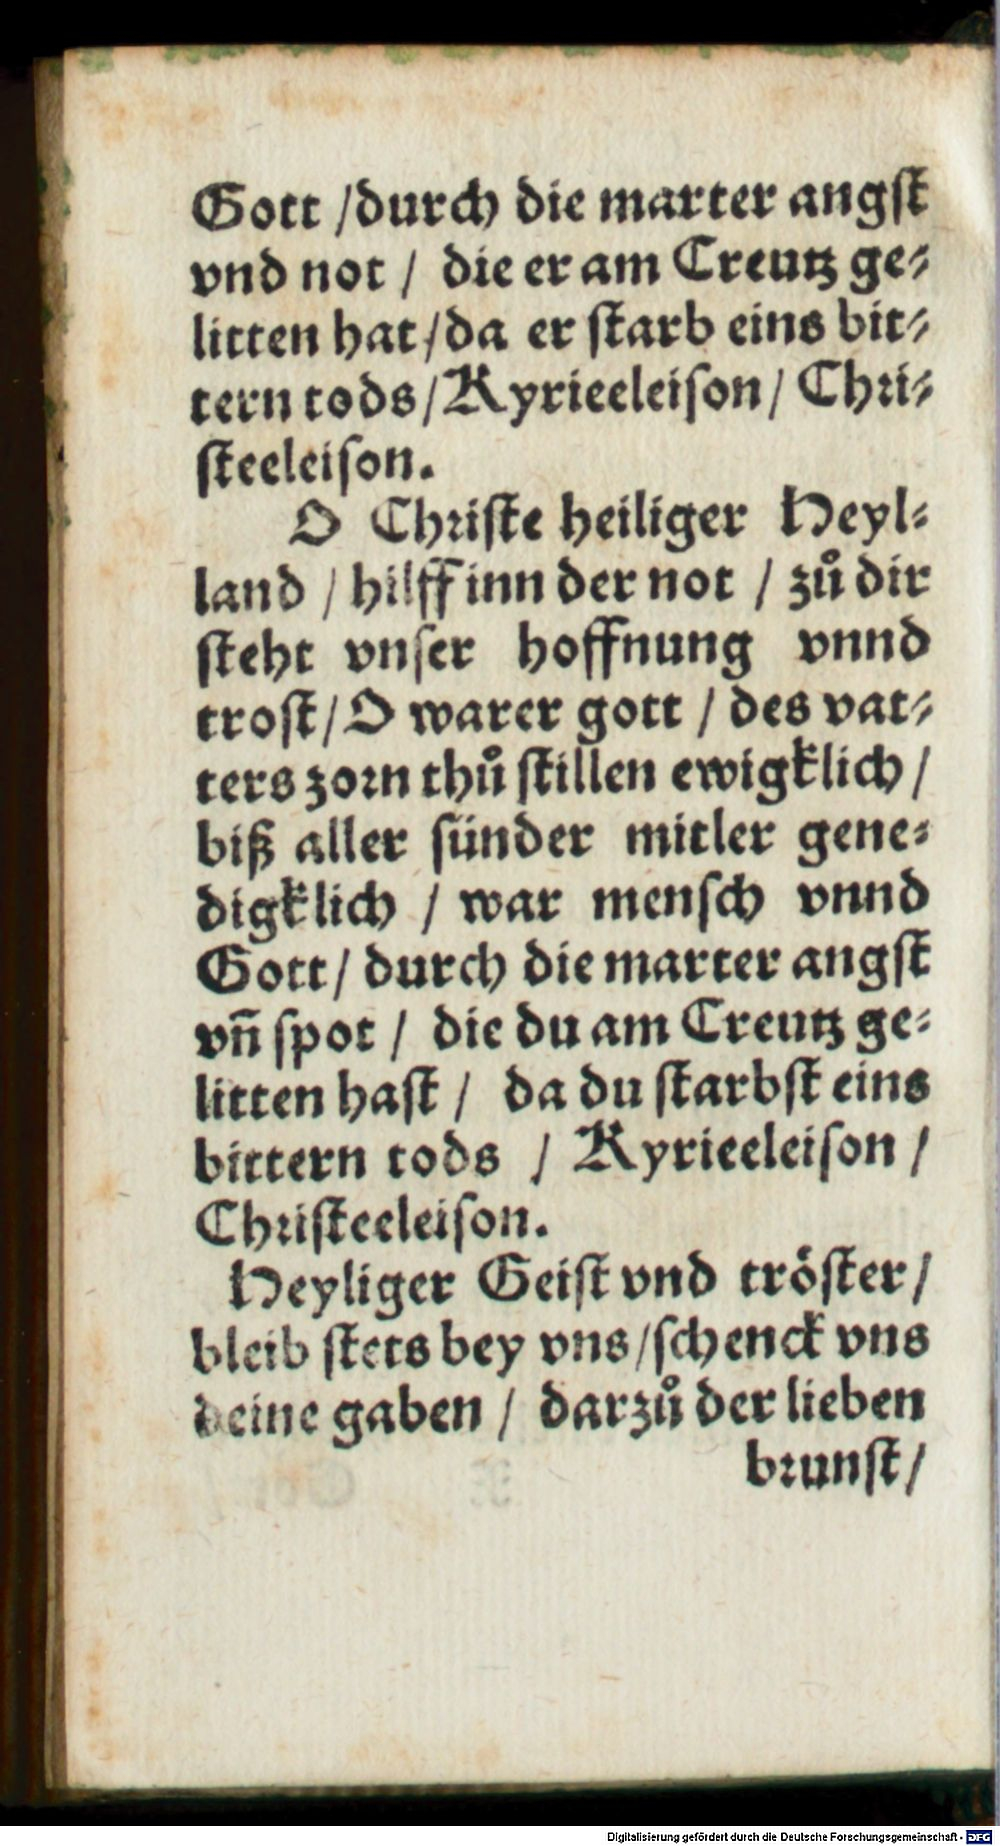 Gott /durch die marter angſt
vnd not / die er am Creutz ge⸗
litten hat/da er ſtarb eins bit⸗
tern tods/Kyrieeleiſon/ Chri⸗
ſteeleiſon.
O Chriſte heiliger Heyl⸗
land / hilff inn der not / zů dir
ſteht vnſer hoffnung vnnd
troſt/O warer gott / des vat⸗
ters zorn thů ſtillen ewigklich /
biß aller ſünder mitler gene⸗
digklich / war menſch vnnd
Gott/ durch die marter angſt
vn̄ ſpot / die du am Creutz ge⸗
litten haſt / da du ſtarbſt eins
bittern tods / Kyrieeleiſon /
Chriſteeleiſon.
Heyliger Geiſt vnd tröſter/
bleib ſtets bey vns/ſchenck vns
deine gaben / darzů der lieben
brunſt/
Digitalisierung gefördert durch die Deutsche Forschungsgemeinschaft - DFG